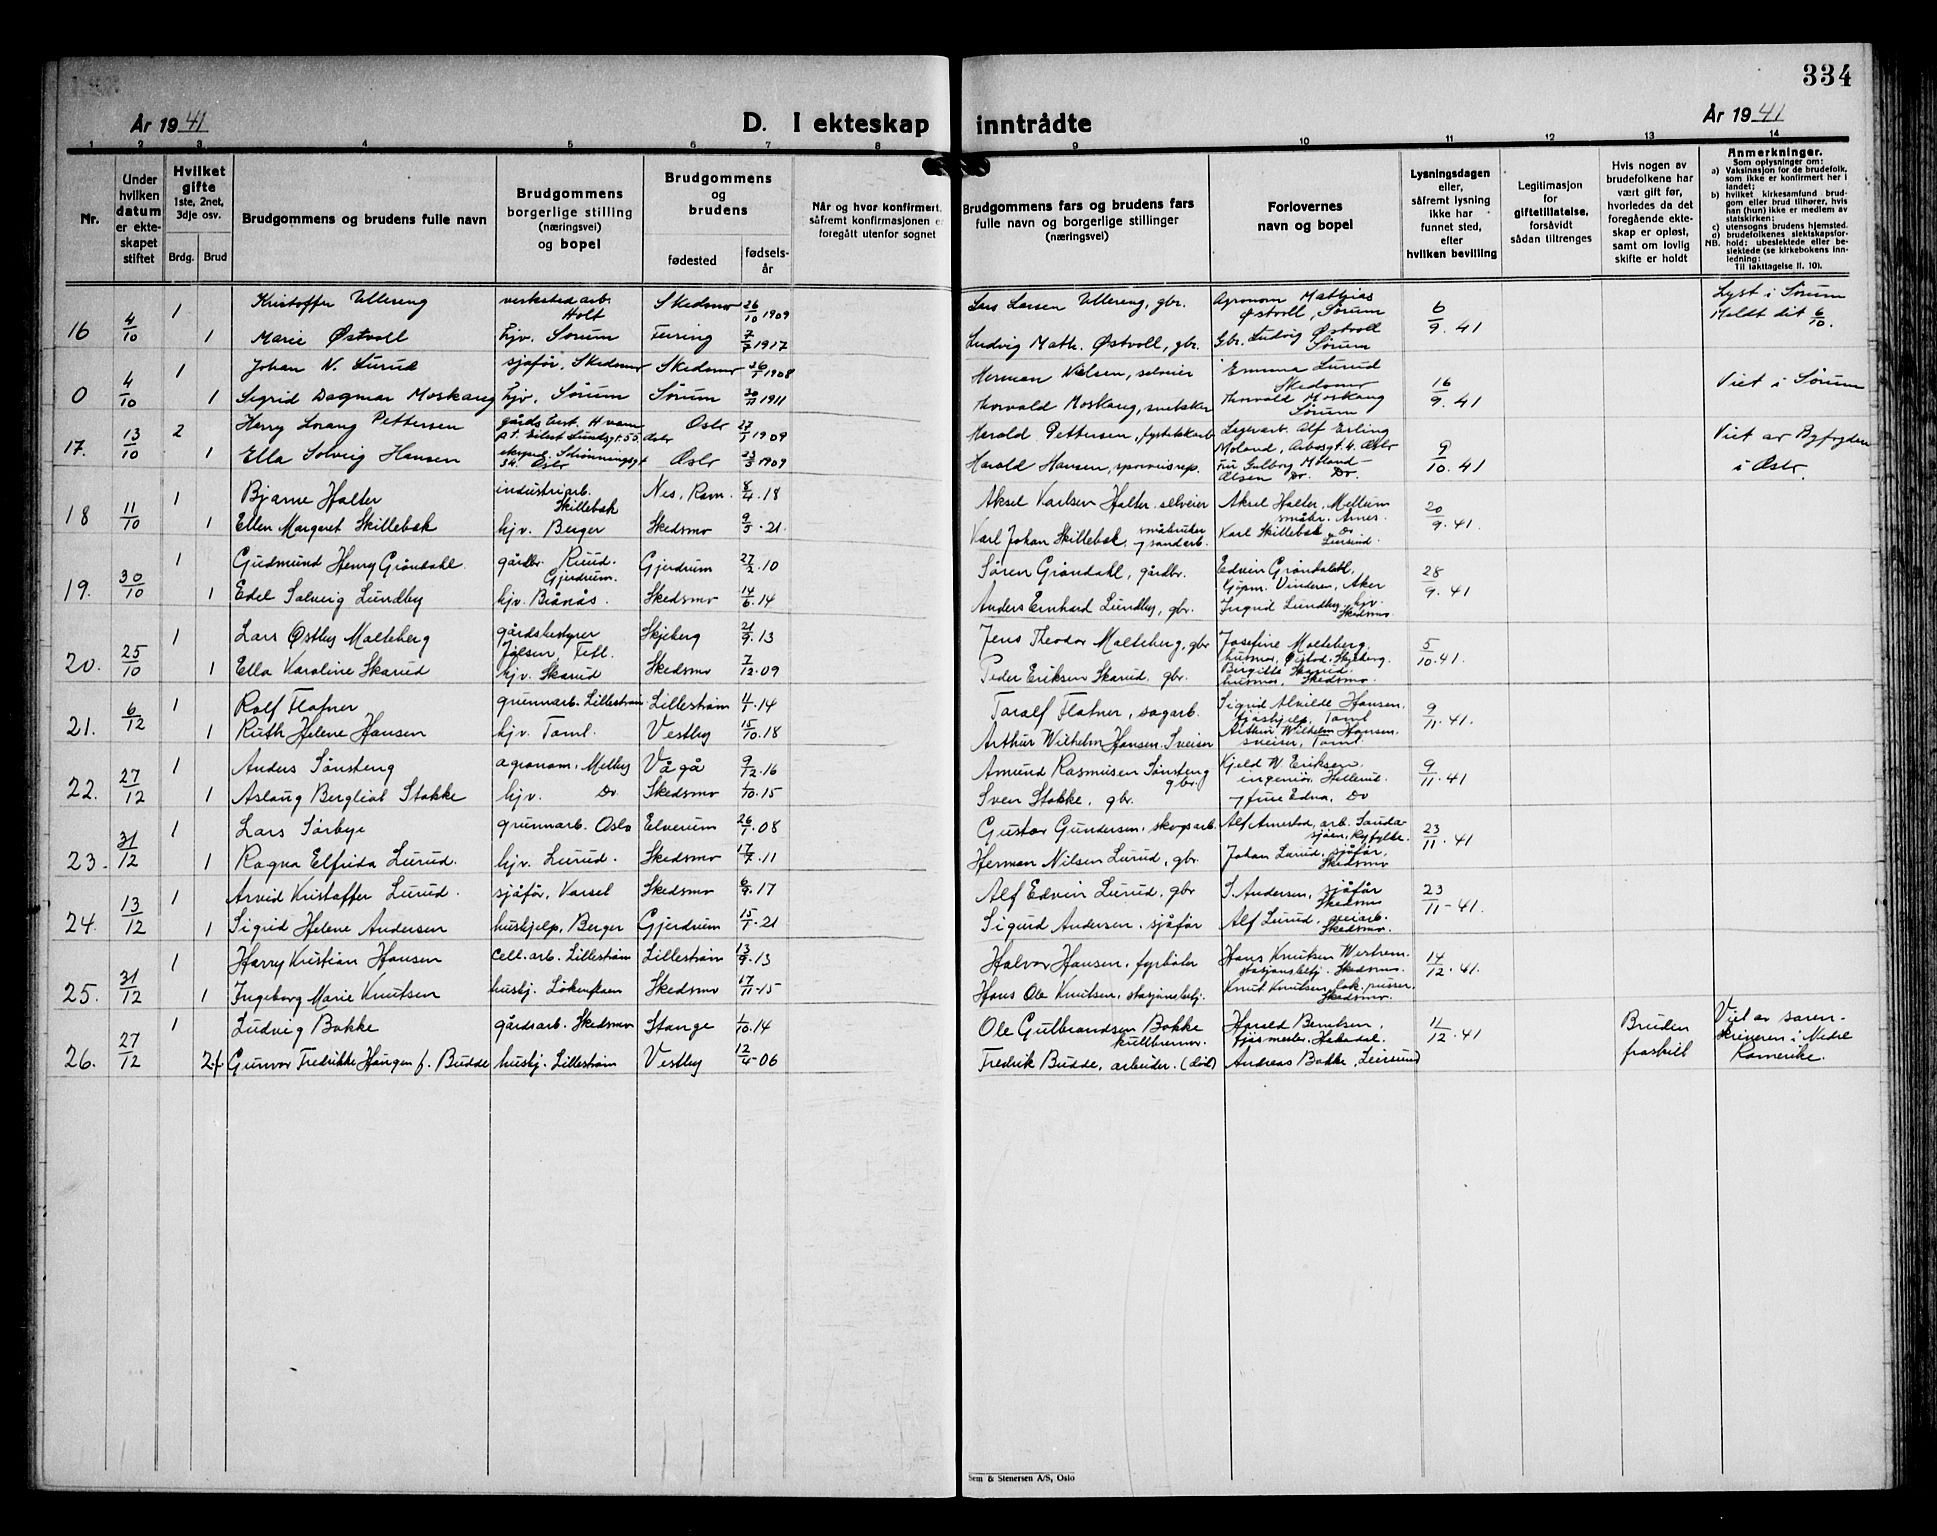 334
År 1941
D. I ekteskap inntrådte
År 1941
1 2 3 4 5 6 7 8 9 10 11 12 13 14
Nr.
Under hvilken datum er ekteskapet stiftet
Hvilket gifte 1ste, 2net, 3dje osv.
Brdg. Brud
Brudgommens og brudens fulle navn
Brudgommens borgerlige stilling (næringsvei) og bopel
Brudgommens og brudens
fødested
fødselsår
Når og hvor konfirmert, såfremt konfirmasjonen er foregått utenfor sognet
Brudgommens fars og brudens fars fulle navn og borgerlige stillinger (næringsvei)
Forlovernes navn og bopel
Lysningsdagen eller, såfremt lysning ikke har funnet sted, efter hvilken bevilling
Legitimasjon for giftetillatelse, forsåvidt sådan tiltrenges
Hvis nogen av brudefolkene har vært gift før, hvorledes da det foregående ekteskap er opløst, samt om lovlig skifte er holdt
Anmerkninger.
Som oplysninger om:
a) Vaksinasjon for de brudefolk, som ikke er konfirmert her i landet;
b) hvilket kirkesamfund brudgom eller brud tilhører, hvis han (hun) ikke er medlem av statskirken;
c) utensogns brudens hjemsted.
d) brudefolkenes slektskapsforhold: ubeslektede eller beslektede (se kirkebokens innledning:
NB. Til iakttagelse II. 10).
16 4/10 1 Kristoffer Ullereng verkstedarb. Holt Skedsmo 26/10 1909 Lars Larsen Ullereng, gbr. Agronom Mathias Østvoll, Sørum 6/9. 41 Lyst i Sørum Meldt dit 6/10.
1 Marie Østvoll hjv. Sørum Feiring 7/7 1917 Ludvig Math. Østvoll, gbr. Gbr. Ludvig Østvoll Sørum
0 4/10 1 Johan N. Lurud sjåfør, Skedsmo Skedsmo 1908 Herman Nielsen, selveier Emma Lurud Skedsmo 16/9. 41 Viet i Sørum
1 Sigrid Dagmar Moskaug hjv. Sørum Sørum 20/11 1911 Thorvald Moskaug, Thorvald Moskaug Sørum
17. 13/10 2 Harry Lorang Pettersen gårdsbest. Hvam p.t. Eilert Sundsgt. 55, Oslo Oslo 27/1 1909 Harald Pettersen, Lagerarb. Alf Erling Moland, Arbosgt. 4. Oslo 9/10. 41 Viet av Byfogden i Oslo.
1 Ella Solveig Hansen 34. Oslo Oslo 23/3 1909 Harald Hansen, Fru Gulborg Moland Olsen Do. Do.
18 11/10 1 Bjarne Halter industriarb. Skillebek Nes, Rom. 8/4. 18 Aksel Karlsen Halter, selveier Aksel Halter, Mellum småbr. Årnes. 20/9. 41.
1 Ellen Margaret Skillebek hjv. Berger Skedsmo 9/3. 21. Karl Johan Skillebek, småbruker Karl Skillebek Do
19. 30/10 1 Gudmund Henry Grøndahl. gårdbr. Ruud. Gjerdrum. Gjerdrum 27/2. 10 Søren Grøndahl, gårdbr. Edvin Grøndahl, Kjøpm. Vinderen, Aker 28/9. 41
1 Edel Solveig Lundby hjv. Brånås. Skedsmo 14/6. 14 Anders Ernhard Lundby, gbr. Ingrid Lundby, hjv. Skedsmo
20. 25/10 1 Lars Østby Molteberg gårdsbestyrer Jølsen, Fetl. Skjeberg 21/9. 13 Jens Theodor Molteberg, gbr Josefine Molteberg, husmor, Skjeberg. 5/10. 41.
1 Ella Karoline Skarud hjv. Skarud Skedsmo 7/12. 09 Peder Eriksen Skarud, gbr. Birgitte Skarud, husmor, Skedsmo.
21. 6/12 1 Rolf Flatner grunnarb. Lillestrøm Lillestrøm 4/1. 14 Toralf Flatner, sagarb. Sigrid Alvilde Hansen, 9/11. 41.
1 Ruth Helene Hansen hjv. Vestby 15/10. 18 Arthur Wilhelm Hansen. Sveiser Arthur Wilhelm Hansen. sveiser,
22. 27/12 1 Anders Sønsteng agronom, Melby Vågå 9/12. 16 Amund Rasmusen Sønsteng gbr. Kjeld W. Eriksen. ingeniør, 9/11. 41
1 Aslaug Bergliot Stokke hjv. Do Skedsmo 5/10. 15 Sven Stokke, gbr. frue Edna, Do
23. 31/12 1 Lars Sørbye grunnarb. Oslo Elverum 26/1. 08 Gustav Gundersen, skogsarb. Alf Arnestad, arb. Saudasjøen, Ryfylke. 23/11. 41
1 Ragna Elfrida Lurud. hjv. Lurud. Skedsmo 17/7. 11 Herman Nilsen Lurud, gbr. Johan Lurud, sjåfør, Skedsmo
24. 13/12 1 Arvid Kristoffer Lurud. sjåfør, Vorsel Skedsmo 6/9. 17 Alf Edvin Lurud, gbr S. Andersen, sjåfør Skedsmo 23/11 - 41.
1 Sigrid Helene Andersen hushjelp, Berger Gjerdrum 15/1. 21 Sigurd Andersen. sjåfør Alf Lurud, veiarb. Skedsmo.
25. 31/12 1 Harry Kristian Hansen cell. arb. Lillestrøm Lillestrøm 13/9. 13 Halvor Hansen, fyrbøter Hans Knutsen Westrem, stasjonsbetj. Skedsmo. 14/12. 41.
1 Ingeborg Marie Knutsen hushj. Løkenåsen Skedsmo 17/11 - 15 Hans Ole Knutsen, stasjonsbetj. Knut Knutsen, lok. pusser, Skedsmo.
26. 27/12 1 Ludvig Bakke gårdsarb. Skedsmo Stange 1/10. 14 Ole Gulbrandsen Bakke kullbrenner. Harald Berntsen, fjøsmester, 11/12. 41 Bruden fraskilt Viet av sorenskriveren i Nedre Romerike.
2 f. Gunvor Fredrikke Haugen f. Budde hushj. Lillestrøm Vestby 12/4 - 06 Fredrik Budde, arbeider. (død) Andreas Bakke, Leirsund
Sem & Stenersen A/S, Oslo